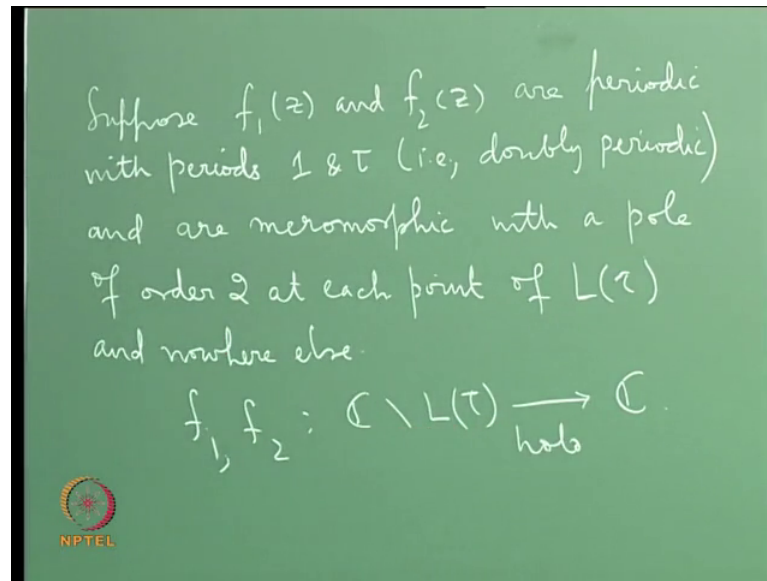 Suppose f₁(z) and f₂(z) are periodic
with periods 1 & τ (i.e., doubly periodic)
and are meromorphic with a pole
of order 2 at each point of L(τ)
and nowhere else.
f₁, f₂ : ℂ \ L(τ) ⟶ ℂ.
holo
NPTEL